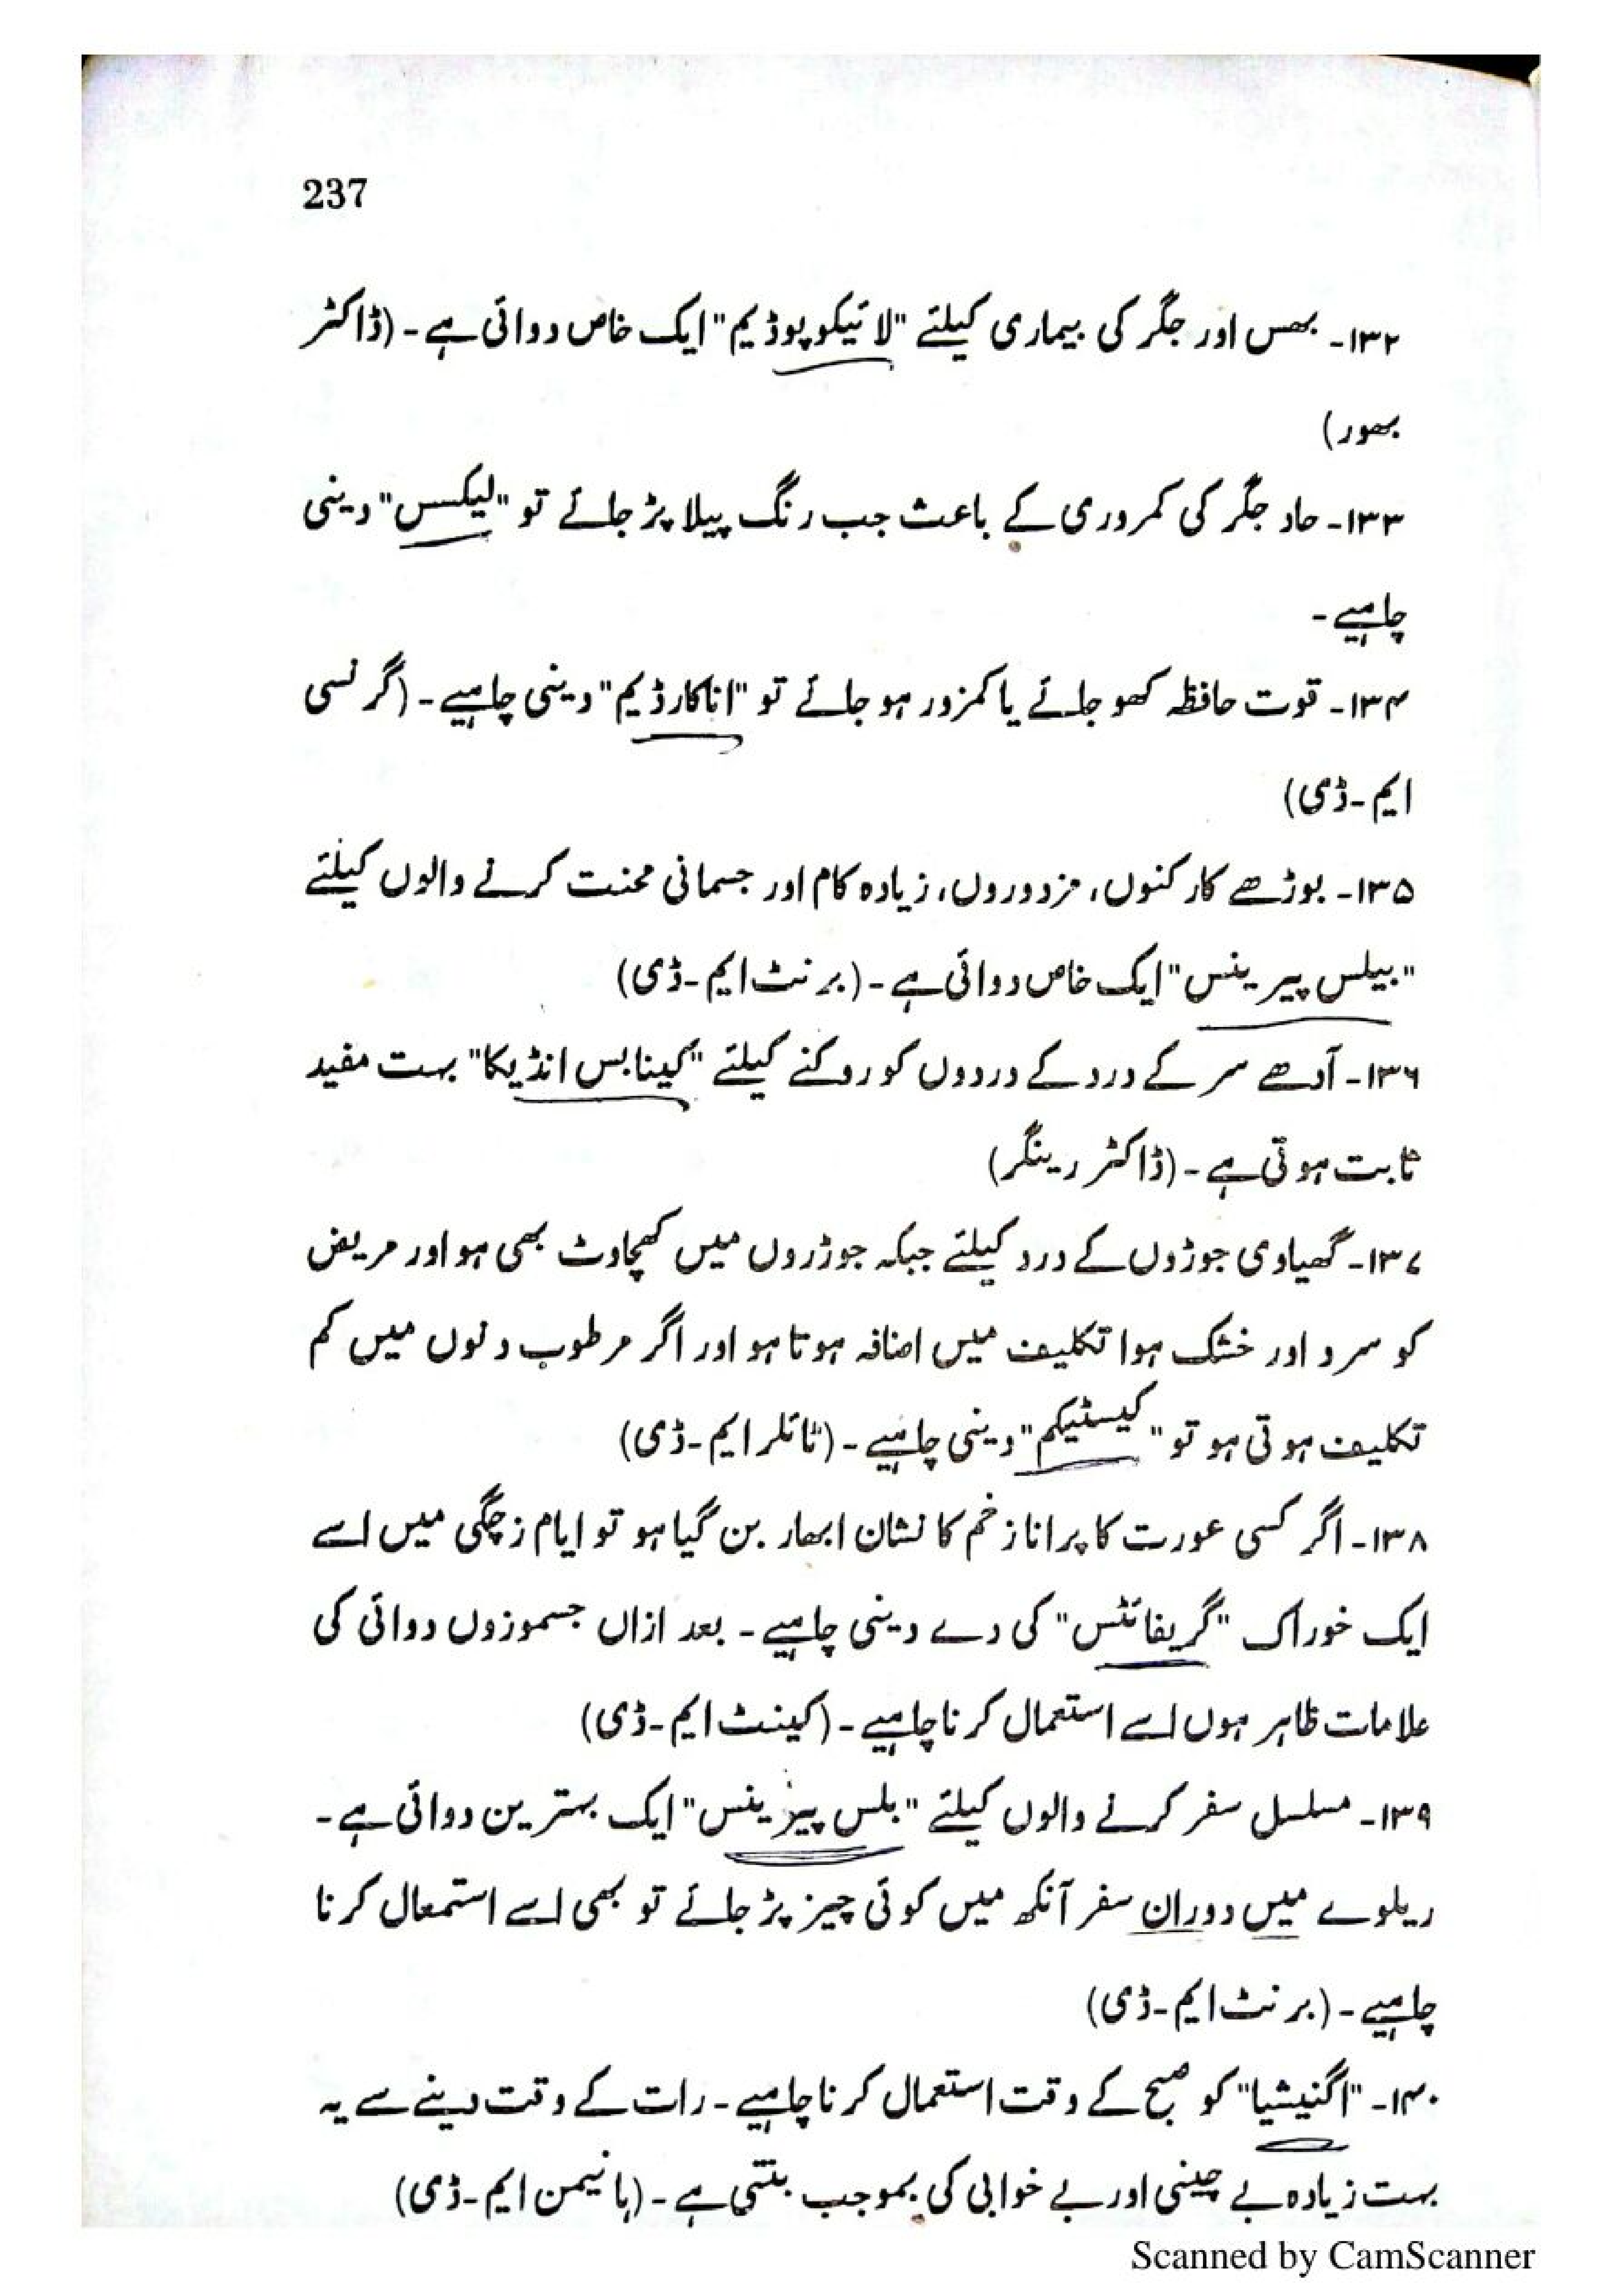 237
۱۳۲۔ بھس اور جگر کی بیماری کیلئے "لائیکوپوڈیم" ایک خاص دوائی ہے۔ (ڈاکٹر
بھور)
۱۳۳۔ حاد جگر کی کمروری کے باعث جب رنگ پیلا پڑ جائے تو "لیکسس" دینی
چاہیے۔
۱۳۴۔ قوت حافظہ کھو جائے یا کمزور ہو جائے تو "اناکارڈیم" دینی چاہیے۔ (گرنسی
ایم۔ڈی)
۱۳۵۔ بوڑھے کارکنوں، مزدوروں، زیادہ کام اور جسمانی محنت کرنے والوں کیلئے
"بیلس پیرینس" ایک خاص دوائی ہے۔ (برنٹ ایم۔ڈی)
۱۳۶۔ آدھے سر کے درد کے دردوں کو روکنے کیلئے "کینابس انڈیکا" بہت مفید
ثابت ہوتی ہے۔ (ڈاکٹر رینگر)
۱۳۷۔ گھیاوی جوڑوں کے درد کیلئے جبکہ جوڑروں میں کھچاوٹ بھی ہو اور مریض
کو سرد اور خشک ہوا تکلیف میں اضافہ ہوتا ہو اور اگر مرطوب دنوں میں کم
تکلیف ہوتی ہو تو "کیسٹیکم" دینی چاہیے۔ (ٹائلر ایم۔ڈی)
۱۳۸۔ اگر کسی عورت کا پرانا زخم کا نشان ابھار بن گیا ہو تو ایام زچگی میں اسے
ایک خوراک "گریفائٹس" کی دے دینی چاہیے۔ بعد ازاں جسموزوں دوائی کی
علامات ظاہر ہوں اسے استعمال کرنا چاہیے۔ (کینٹ ایم۔ڈی)
۱۳۹۔ مسلسل سفر کرنے والوں کیلئے "بلس پیرینس" ایک بہترین دوائی ہے۔
ریلوے میں دوران سفر آنکھ میں کوئی چیز پڑ جائے تو بھی اسے استمعال کرنا
چاہیے۔ (برنٹ ایم۔ڈی)
۱۴۰۔ "اگنیشیا" کو صبح کے وقت استعمال کرنا چاہیے۔ رات کے وقت دینے سے یہ
بہت زیادہ بے چینی اور بے خوابی کی بموجب بنتی ہے۔ (ہانیمن ایم۔ڈی)
Scanned by CamScanner